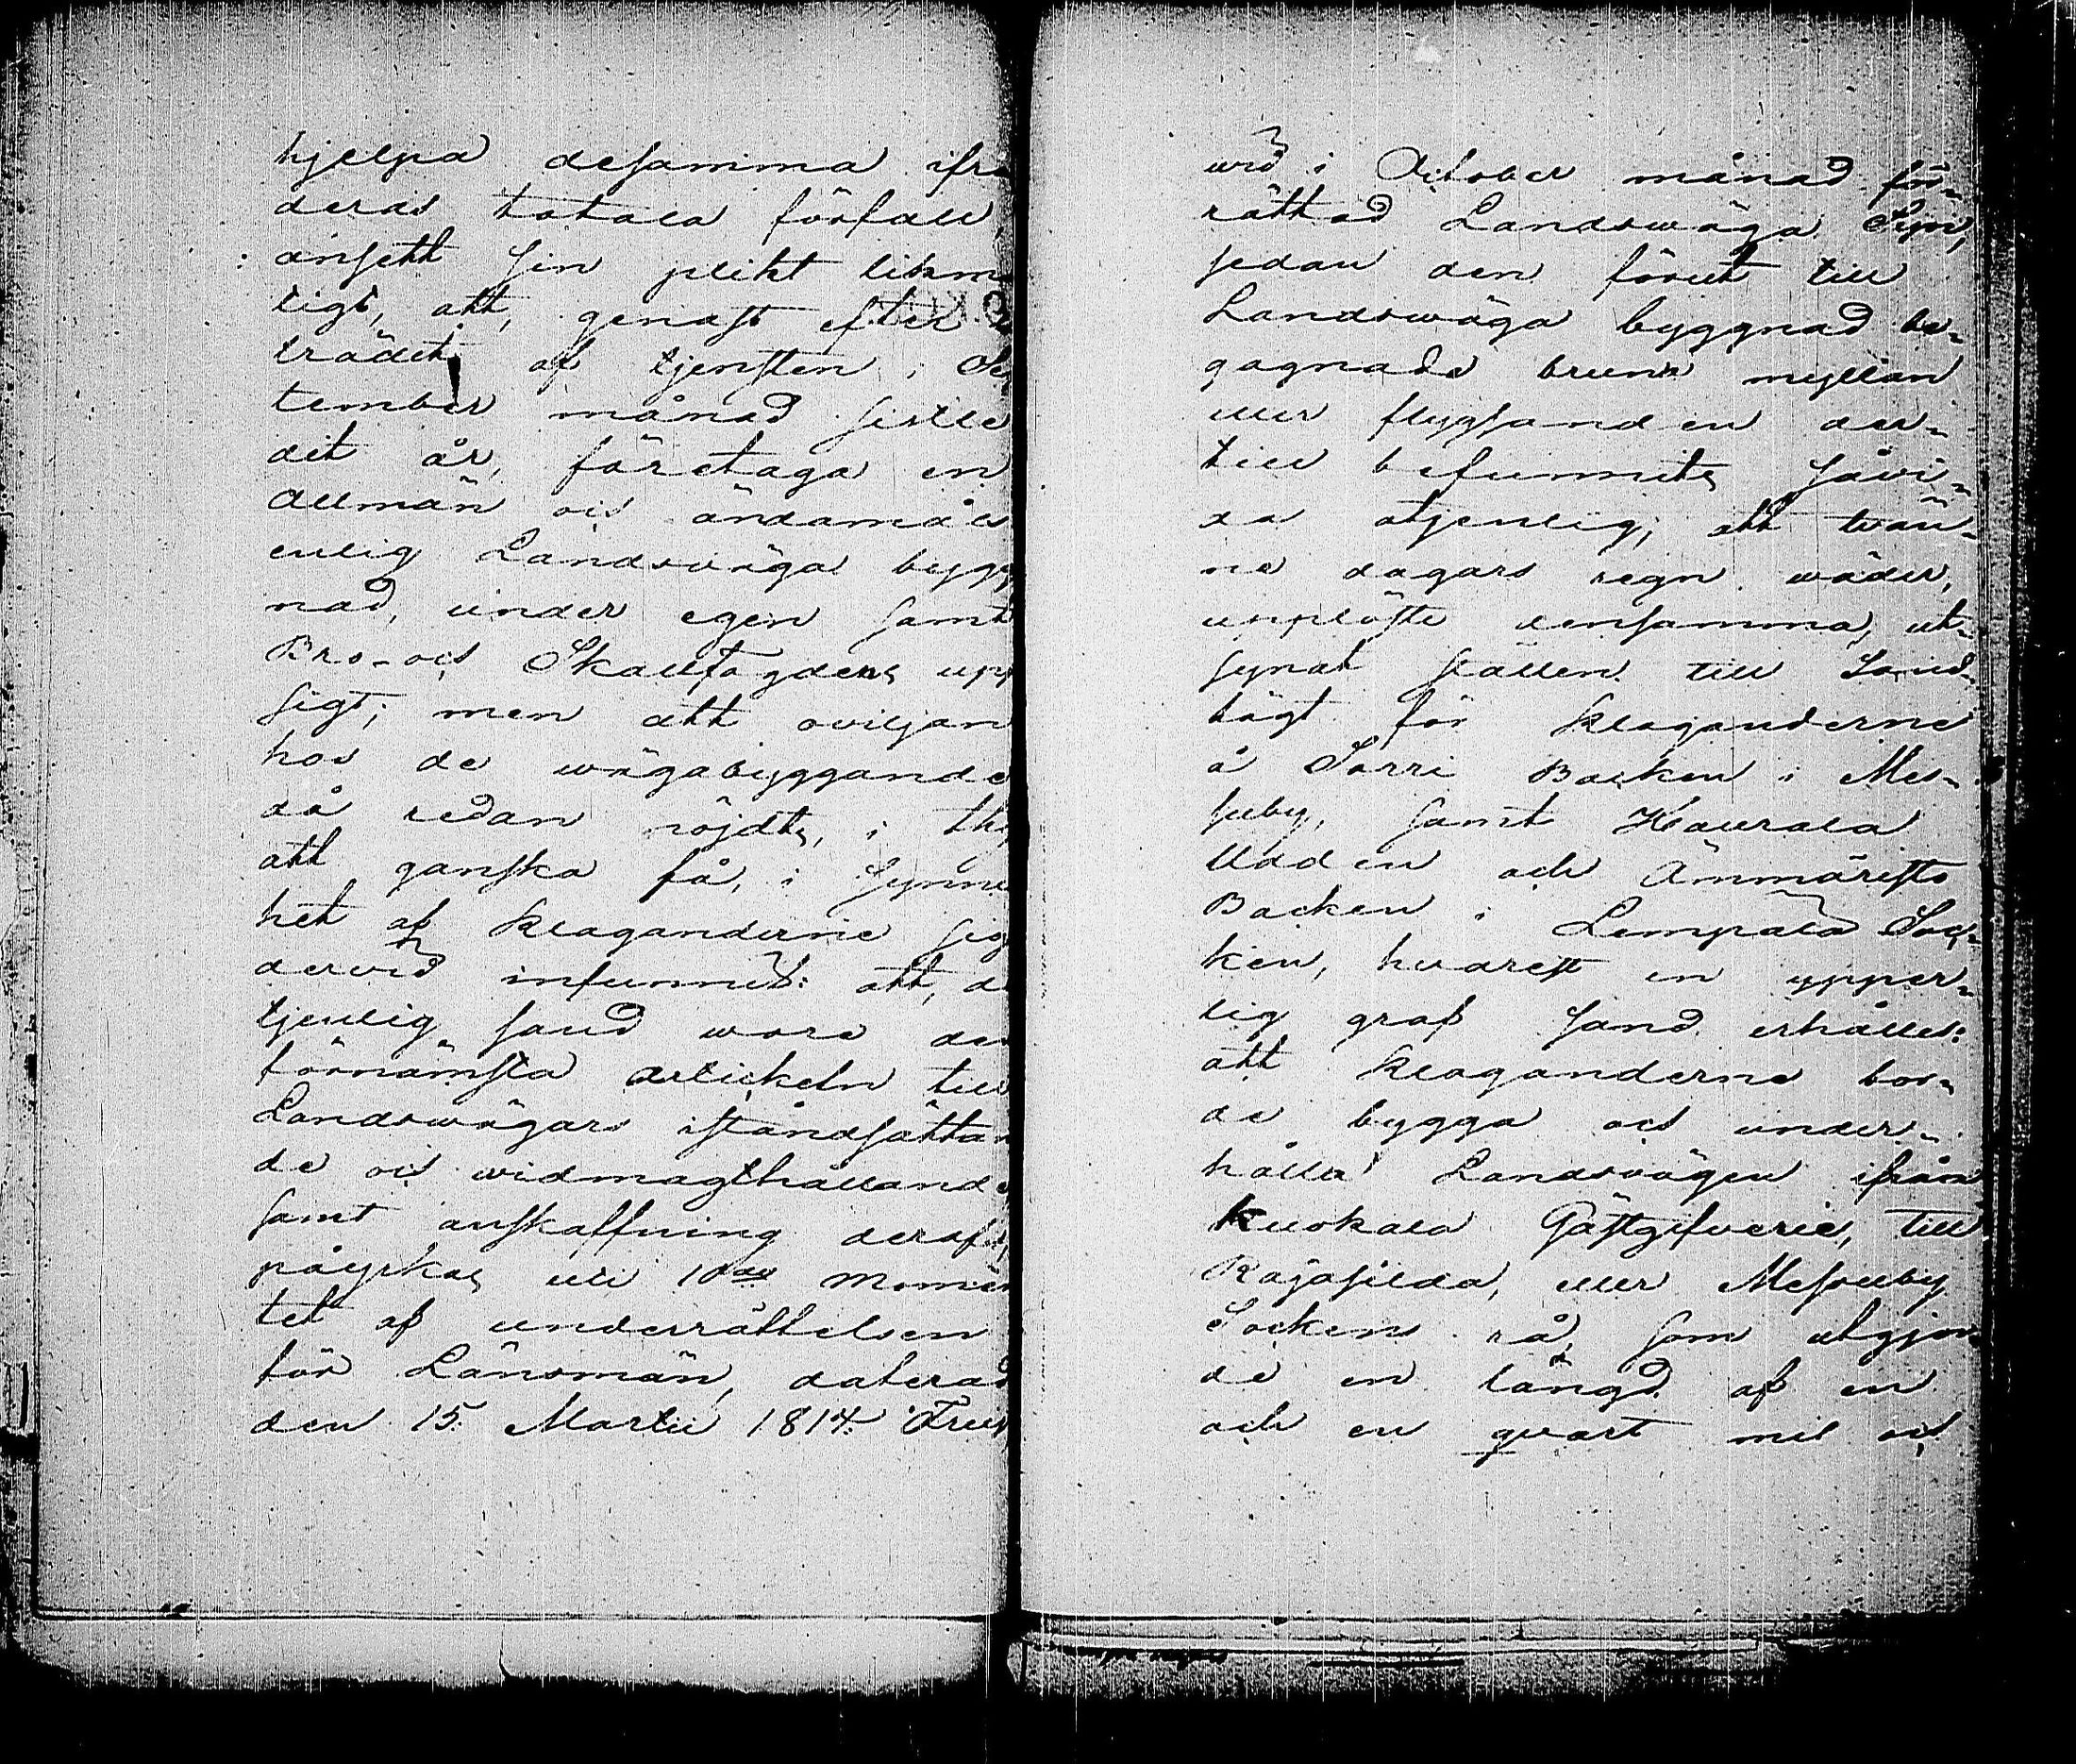 hjelpa desamma ifrå
deras totala förfall,
ansett sin plikt likm
ligt, att, genast efter
trädet af tjensten i Sep
tember månad sistle
dit år, företaga en
allmän och ändamåls
enlig Landsväga bygg
nad, under egen samt
Bro- och Skallfogdens upp
sigt; men att oviljan
hos de wägabyggande
då redan röjdts, i thy
att ganska få, i synner
het af klaganderne sig
dervid infunnit: att, då
tjenlig sand wore den
förnämsta artickeln till
Landswägars iståndsättan
de och widmagthålland
samt anskaffning deraf
påyrkas uti 10de momen
tet af underrättelsen
för Länsmän, daterad
den 15 Martii 1814. Trus
wid i October månad för-
rättad Landswäga Syn,
sedan den förut till
Landswäga byggnad be-
gagnade bruna myllan
eller flygsanden der-
till befunnits såvi-
da otjenlig, att tvän-
ne dagars regn wäder,
upplöste densamma, ut-
synat ställen till Sand-
tägt för klaganderne
å Sorri Backen i Mes-
suby, samt Kaurala
Udden och Ämmäristö
Backen i Lempälä Soc-
ken, hvarest en ypper-
lig graf sand erhålles:
att klaganderne bor-
de bygga och under-
hålla Landsvägen ifrån
Kuokala Gästgifveri, till
Rajasilda, eller Messuby
Sockens rå, som utgjor-
de en längd af en
och en qvart mil och